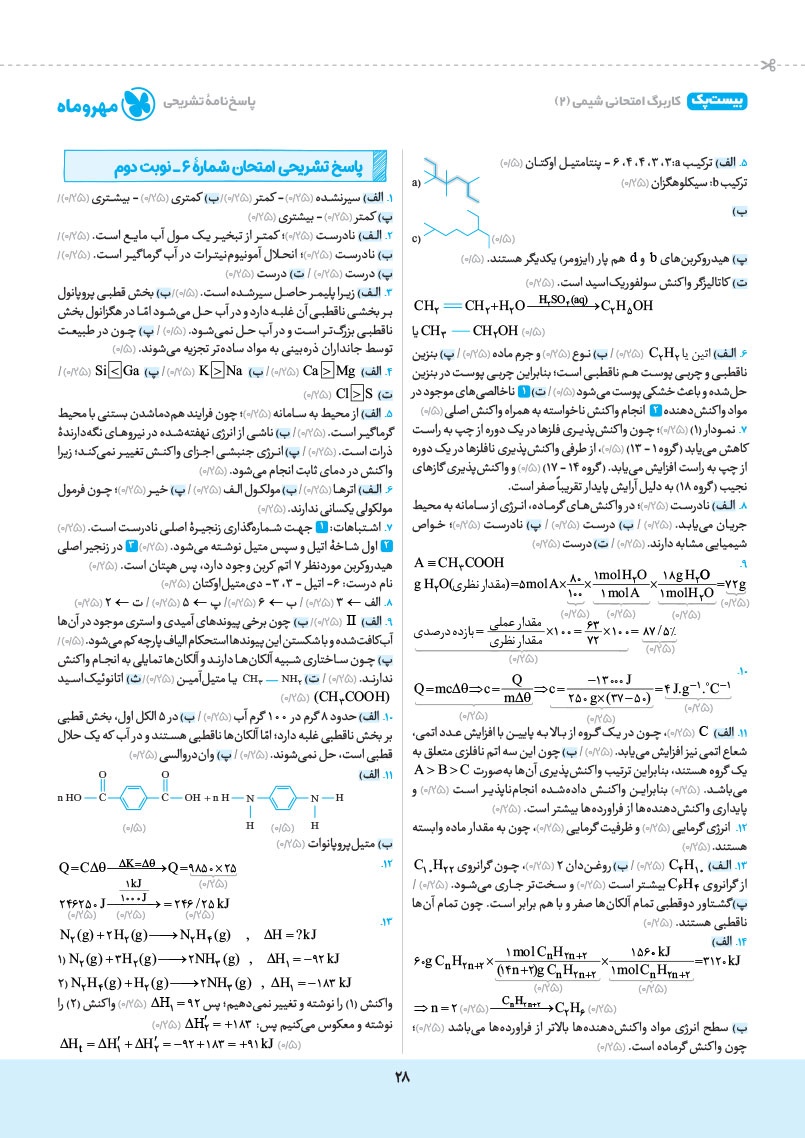 بیست‌پک کاربرگ امتحانی شیمی (۲)
پاسخ‌نامهٔ تشریحی مهروماه
۵. الف) ترکیب a:‏ ۳، ۳، ۴، ۴، ۶ - پنتامتیل اوکتان (۰/۵)
a)
ترکیب b: سیکلوهگزان (۰/۲۵)
ب)
c) (۰/۵)
پ) هیدروکربن‌های b و d هم پار (ایزومر) یکدیگر هستند. (۰/۵)
ت) کاتالیزگر واکنش سولفوریک‌اسید است. (۰/۲۵)
CH۲ = CH۲+H۲O —H۲SO۴(aq)→ C۲H۵OH
یا CH۳ — CH۲OH (۰/۵)
۶. الف) اتین یا C۲H۲ (۰/۲۵) / ب) نوع (۰/۲۵) و جرم ماده (۰/۲۵) / پ) بنزین
ناقطبی و چربی پوست هم ناقطبی است؛ بنابراین چربی پوست در بنزین
حل‌شده و باعث خشکی پوست می‌شود (۰/۵) / ت) ۱ ناخالصی‌های موجود در
مواد واکنش‌دهنده ۲ انجام واکنش ناخواسته به همراه واکنش اصلی (۰/۵)
۷. نمودار (۱) (۰/۲۵)؛ چون واکنش‌پذیری فلزها در یک دوره از چپ به راست
کاهش می‌یابد (گروه ۱ - ۱۳) (۰/۵)، از طرفی واکنش‌پذیری نافلزها در یک دوره
از چپ به راست افزایش می‌یابد. (گروه ۱۴ - ۱۷) (۰/۵) و واکنش‌پذیری گازهای
نجیب (گروه ۱۸) به دلیل آرایش پایدار تقریباً صفر است.
۸. الف) نادرست (۰/۲۵)؛ در واکنش‌های گرماده، انرژی از سامانه به محیط
جریان می‌یابد. (۰/۲۵) / ب) درست (۰/۲۵) / پ) نادرست (۰/۲۵)؛ خواص
شیمیایی مشابه دارند. (۰/۲۵) / ت) درست (۰/۲۵)
۹. A ≡ CH۳COOH
g H۲O (مقدار نظری) = ۵mol A × ۸۰/۱۰۰ × ۱mol H۲O/۱mol A × ۱۸g H۲O/۱mol H۲O = ۷۲g
(۰/۲۵) (۰/۲۵) (۰/۲۵) (۰/۲۵)
بازده درصدی = مقدار عملی/مقدار نظری × ۱۰۰ = ۶۳/۷۲ × ۱۰۰ = ۸۷/۵٪
(۰/۲۵) (۰/۲۵)
۱۰.
Q = mcΔθ ⇒ c = Q/mΔθ ⇒ c = −۱۳۰۰۰ J/۲۵۰ g×(۳۷−۵۰) = ۴ J.g⁻¹.°C⁻¹
(۰/۲۵) (۰/۲۵) (۰/۲۵)
۱۱. الف) C (۰/۲۵)، چون در یک گروه از بالا به پایین با افزایش عدد اتمی،
شعاع اتمی نیز افزایش می‌یابد. (۰/۲۵) / ب) چون این سه اتم نافلزی متعلق به
یک گروه هستند، بنابراین ترتیب واکنش‌پذیری آن‌ها به‌صورت A > B > C
می‌باشد. (۰/۲۵) بنابراین واکنش داده‌شده انجام‌ناپذیر است (۰/۲۵) و
پایداری واکنش‌دهنده‌ها از فراورده‌ها بیشتر است. (۰/۲۵)
۱۲. انرژی گرمایی (۰/۲۵) و ظرفیت گرمایی (۰/۲۵)، چون به مقدار ماده وابسته
هستند. (۰/۲۵)
۱۳. الف) C۴H۱۰ (۰/۲۵) / ب) روغن‌دان ۲ (۰/۲۵)، چون گرانروی C۱۰H۲۲
از گرانروی C۶H۱۴ بیشتر است (۰/۲۵) و سخت‌تر جاری می‌شود. (۰/۲۵) /
پ) گشتاور دوقطبی تمام آلکان‌ها صفر و با هم برابر است. چون تمام آن‌ها
ناقطبی هستند. (۰/۲۵)
۱۴. الف)
۶۰g CnH۲n+۲ × ۱mol CnH۲n+۲/(۱۴n+۲)g CnH۲n+۲ × ۱۵۶۰ kJ/۱mol CnH۲n+۲ = ۳۱۲۰ kJ
(۰/۲۵) (۰/۲۵)
⇒ n = ۲ (۰/۲۵) —CnH۲n+۲→ C۲H۶ (۰/۲۵)
ب) سطح انرژی مواد واکنش‌دهنده‌ها بالاتر از فراورده‌ها می‌باشد (۰/۲۵)؛
چون واکنش گرماده است. (۰/۲۵)
پاسخ تشریحی امتحان شمارهٔ ۶ ـ نوبت دوم
۱. الف) سیرنشده (۰/۲۵) - کمتر (۰/۲۵) / ب) کمتری (۰/۲۵) - بیشتری (۰/۲۵) /
پ) کمتر (۰/۲۵) - بیشتری (۰/۲۵)
۲. الف) نادرست (۰/۲۵)؛ کمتر از تبخیر یک مول آب مایع است. (۰/۲۵) /
ب) نادرست (۰/۲۵)؛ انحلال آمونیوم‌نیترات در آب گرماگیر است. (۰/۲۵) /
پ) درست (۰/۲۵) / ت) درست (۰/۲۵)
۳. الف) زیرا پلیمر حاصل سیرشده است. (۰/۲۵) / ب) بخش قطبی پروپانول
بر بخشی ناقطبی آن غلبه دارد و در آب حل می‌شود امّا در هگزانول بخش
ناقطبی بزرگ‌تر است و در آب حل نمی‌شود. (۰/۵) / پ) چون در طبیعت
توسط جانداران ذره‌بینی به مواد ساده‌تر تجزیه می‌شوند. (۰/۵)
۴. الف) Ca > Mg (۰/۲۵) / ب) K > Na (۰/۲۵) / پ) Si < Ga (۰/۲۵) /
ت) Cl > S (۰/۲۵)
۵. الف) از محیط به سامانه (۰/۲۵)؛ چون فرایند هم‌دماشدن بستنی با محیط
گرماگیر است. (۰/۲۵) / ب) ناشی از انرژی نهفته‌شده در نیروهای نگه‌دارندهٔ
ذرات است. (۰/۲۵) / پ) انرژی جنبشی اجزای واکنش تغییر نمی‌کند؛ زیرا
واکنش در دمای ثابت انجام می‌شود. (۰/۲۵)
۶. الف) اترها (۰/۲۵) / ب) مولکول الف (۰/۲۵) / پ) خیر (۰/۲۵)؛ چون فرمول
مولکولی یکسانی ندارند. (۰/۲۵)
۷. اشتباهات: ۱ جهت شماره‌گذاری زنجیرهٔ اصلی نادرست است. (۰/۲۵)
۲ اول شاخهٔ اتیل و سپس متیل نوشته می‌شود. (۰/۲۵) ۳ در زنجیر اصلی
هیدروکربن موردنظر ۷ اتم کربن وجود دارد، پس هپتان است. (۰/۲۵)
نام درست: ۶- اتیل - ۳، ۳- دی‌متیل‌اوکتان (۰/۲۵)
۸. الف ← ۳ (۰/۲۵) / ب ← ۶ (۰/۲۵) / پ ← ۵ (۰/۲۵) / ت ← ۲ (۰/۲۵)
۹. الف) II (۰/۲۵) / ب) چون برخی پیوندهای آمیدی و استری موجود در آن‌ها
آب‌کافت‌شده و با شکستن این پیوندها استحکام الیاف پارچه کم می‌شود. (۰/۵) /
پ) چون ساختاری شبیه آلکان‌ها دارند و آلکان‌ها تمایلی به انجام واکنش
ندارند. (۰/۲۵) / ت) CH۳ — NH۲ یا متیل‌آمین (۰/۲۵) / ث) اتانوئیک‌اسید
(CH۳COOH) (۰/۲۵)
۱۰. الف) حدود ۸ گرم در ۱۰۰ گرم آب (۰/۲۵) / ب) در ۵ الکل اول، بخش قطبی
بر بخش ناقطبی غلبه دارد؛ امّا آلکان‌ها ناقطبی هستند و در آب که یک حلال
قطبی است، حل نمی‌شوند. (۰/۲۵) / پ) وان‌دروالسی (۰/۲۵)
۱۱. الف)
O O
n HO — C — C — OH + n H — N — N — H
H H
(۰/۵) (۰/۵)
ب) متیل‌پروپانوات (۰/۲۵)
۱۲. Q = CΔθ —ΔK=Δθ→ Q = ۹۸۵۰ × ۲۵
(۰/۲۵)
۲۴۶۲۵۰ J —۱kJ/۱۰۰۰J→ = ۲۴۶/۲۵ kJ
(۰/۲۵) (۰/۲۵) (۰/۲۵)
۱۳.
N۲(g) + ۲H۲(g) → N۲H۴(g) , ΔH = ? kJ
۱) N۲(g) + ۳H۲(g) → ۲NH۳(g) , ΔH۱ = −۹۲ kJ
۲) N۲H۴(g) + H۲(g) → ۲NH۳(g) , ΔH۱ = −۱۸۳ kJ
واکنش (۱) را نوشته و تغییر نمی‌دهیم؛ پس ΔH۱ = ۹۲ (۰/۲۵) واکنش (۲) را
نوشته و معکوس می‌کنیم پس: ΔH′۲ = +۱۸۳ (۰/۲۵)
ΔHt = ΔH′۱ + ΔH′۲ = −۹۲ + ۱۸۳ = +۹۱ kJ (۰/۵)
۲۸